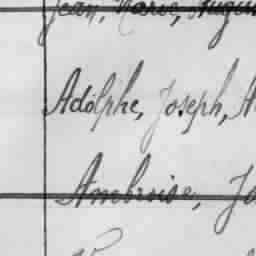 Jean, Marie, Augus
Adolphe, Joseph, A
Ambroise, Jo